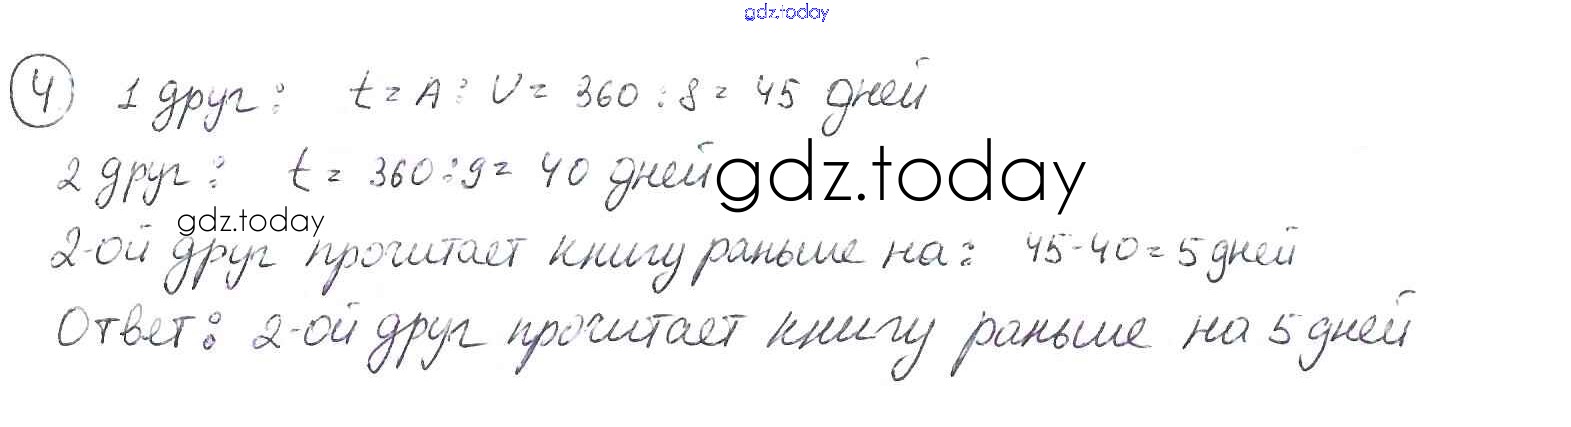 gdz.today
4 1 друг: t = A : V = 360 : 8 = 45 дней
2 друг: t = 360 : 9 = 40 дней gdz.today
gdz.today
2-ой друг прочитает книгу раньше на: 45-40 = 5 дней
Ответ: 2-ой друг прочитает книгу раньше на 5 дней